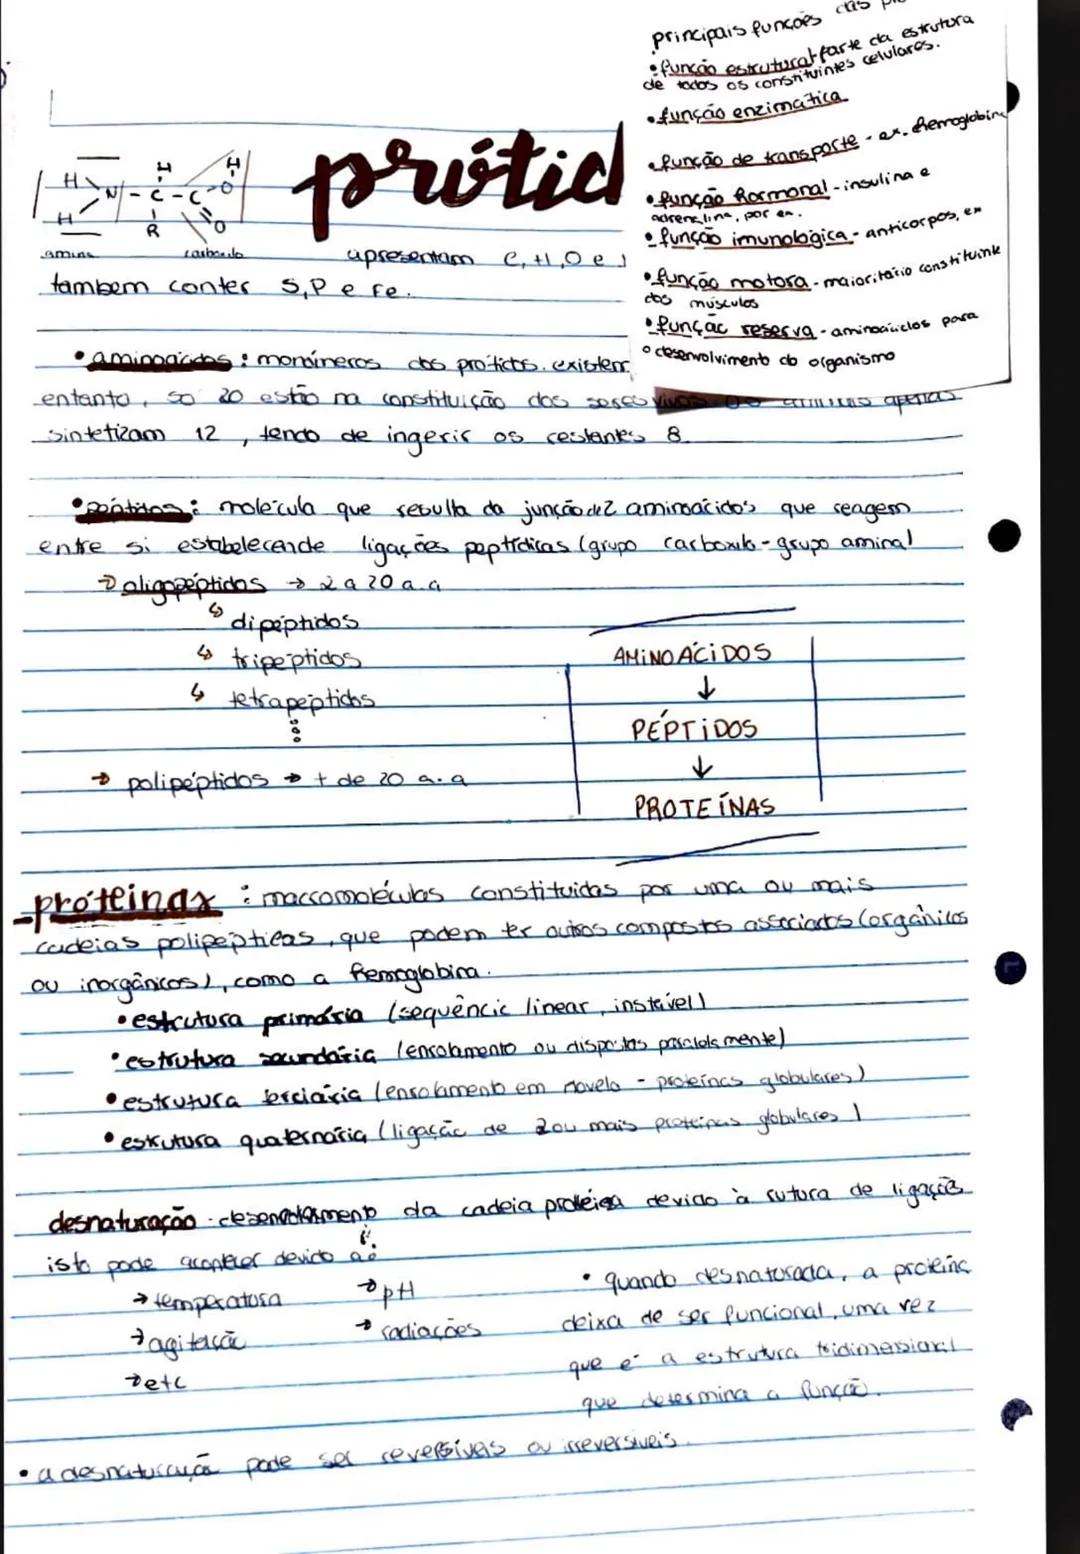 principais funções das
• função estrutural parte da estrutura
de todos os constituintes celulares.
• função enzimática
• função de transporte - ex. hemoglobina
• função hormonal - insulina e
adrenalina, por ex.
• função imunológica - anticorpos, ex
• função motora - maioritário constituinte
dos músculos
• função reserva - aminoácidos para
o desenvolvimento do organismo
prótid
H H H
N - C - C - O
H R O
amina carboxilo
apresentam C, H, O e
tambem conter S, P e Fe.
• aminoácidos : monómeros dos prótidos. existem
entanto, só 20 estão na constituição dos seres vivos. apenas
sintetizam 12, tendo de ingerir os restantes 8.
• péptidos : molécula que resulta da junção de 2 aminoácidos que reagem
entre si estabelecendo ligações peptídicas (grupo carboxilo - grupo amina)
→ oligopéptidos → 2 a 20 a.a
↳ dipéptidos
↳ tripéptidos
↳ tetrapéptidos
→ polipéptidos → + de 20 a.a
AMINOÁCIDOS
↓
PÉPTIDOS
↓
PROTEÍNAS
- próteinas : macromoléculas constituidas por uma ou mais
cadeias polipépticas, que podem ter outros compostos associados (orgânicos
ou inorgânicos), como a hemoglobina.
• estrutura primária (sequência linear, instável)
• estrutura secundária (enrolamento ou dispostas paralelamente)
• estrutura terciária (enrolamento em novelo - proteínas globulares)
• estrutura quaternária (ligação de 2 ou mais proteinas globulares)
desnaturação · desenrolamento da cadeia proteica devido à rutura de ligações
isto pode acontecer devido a:
→ temperatura → pH
→ agitação → radiações
→ etc
• quando desnaturada, a proteína
deixa de ser funcional, uma vez
que é a estrutura tridimensional
que determina a função.
• a desnaturação pode ser reversíveis ou irreversiveis.